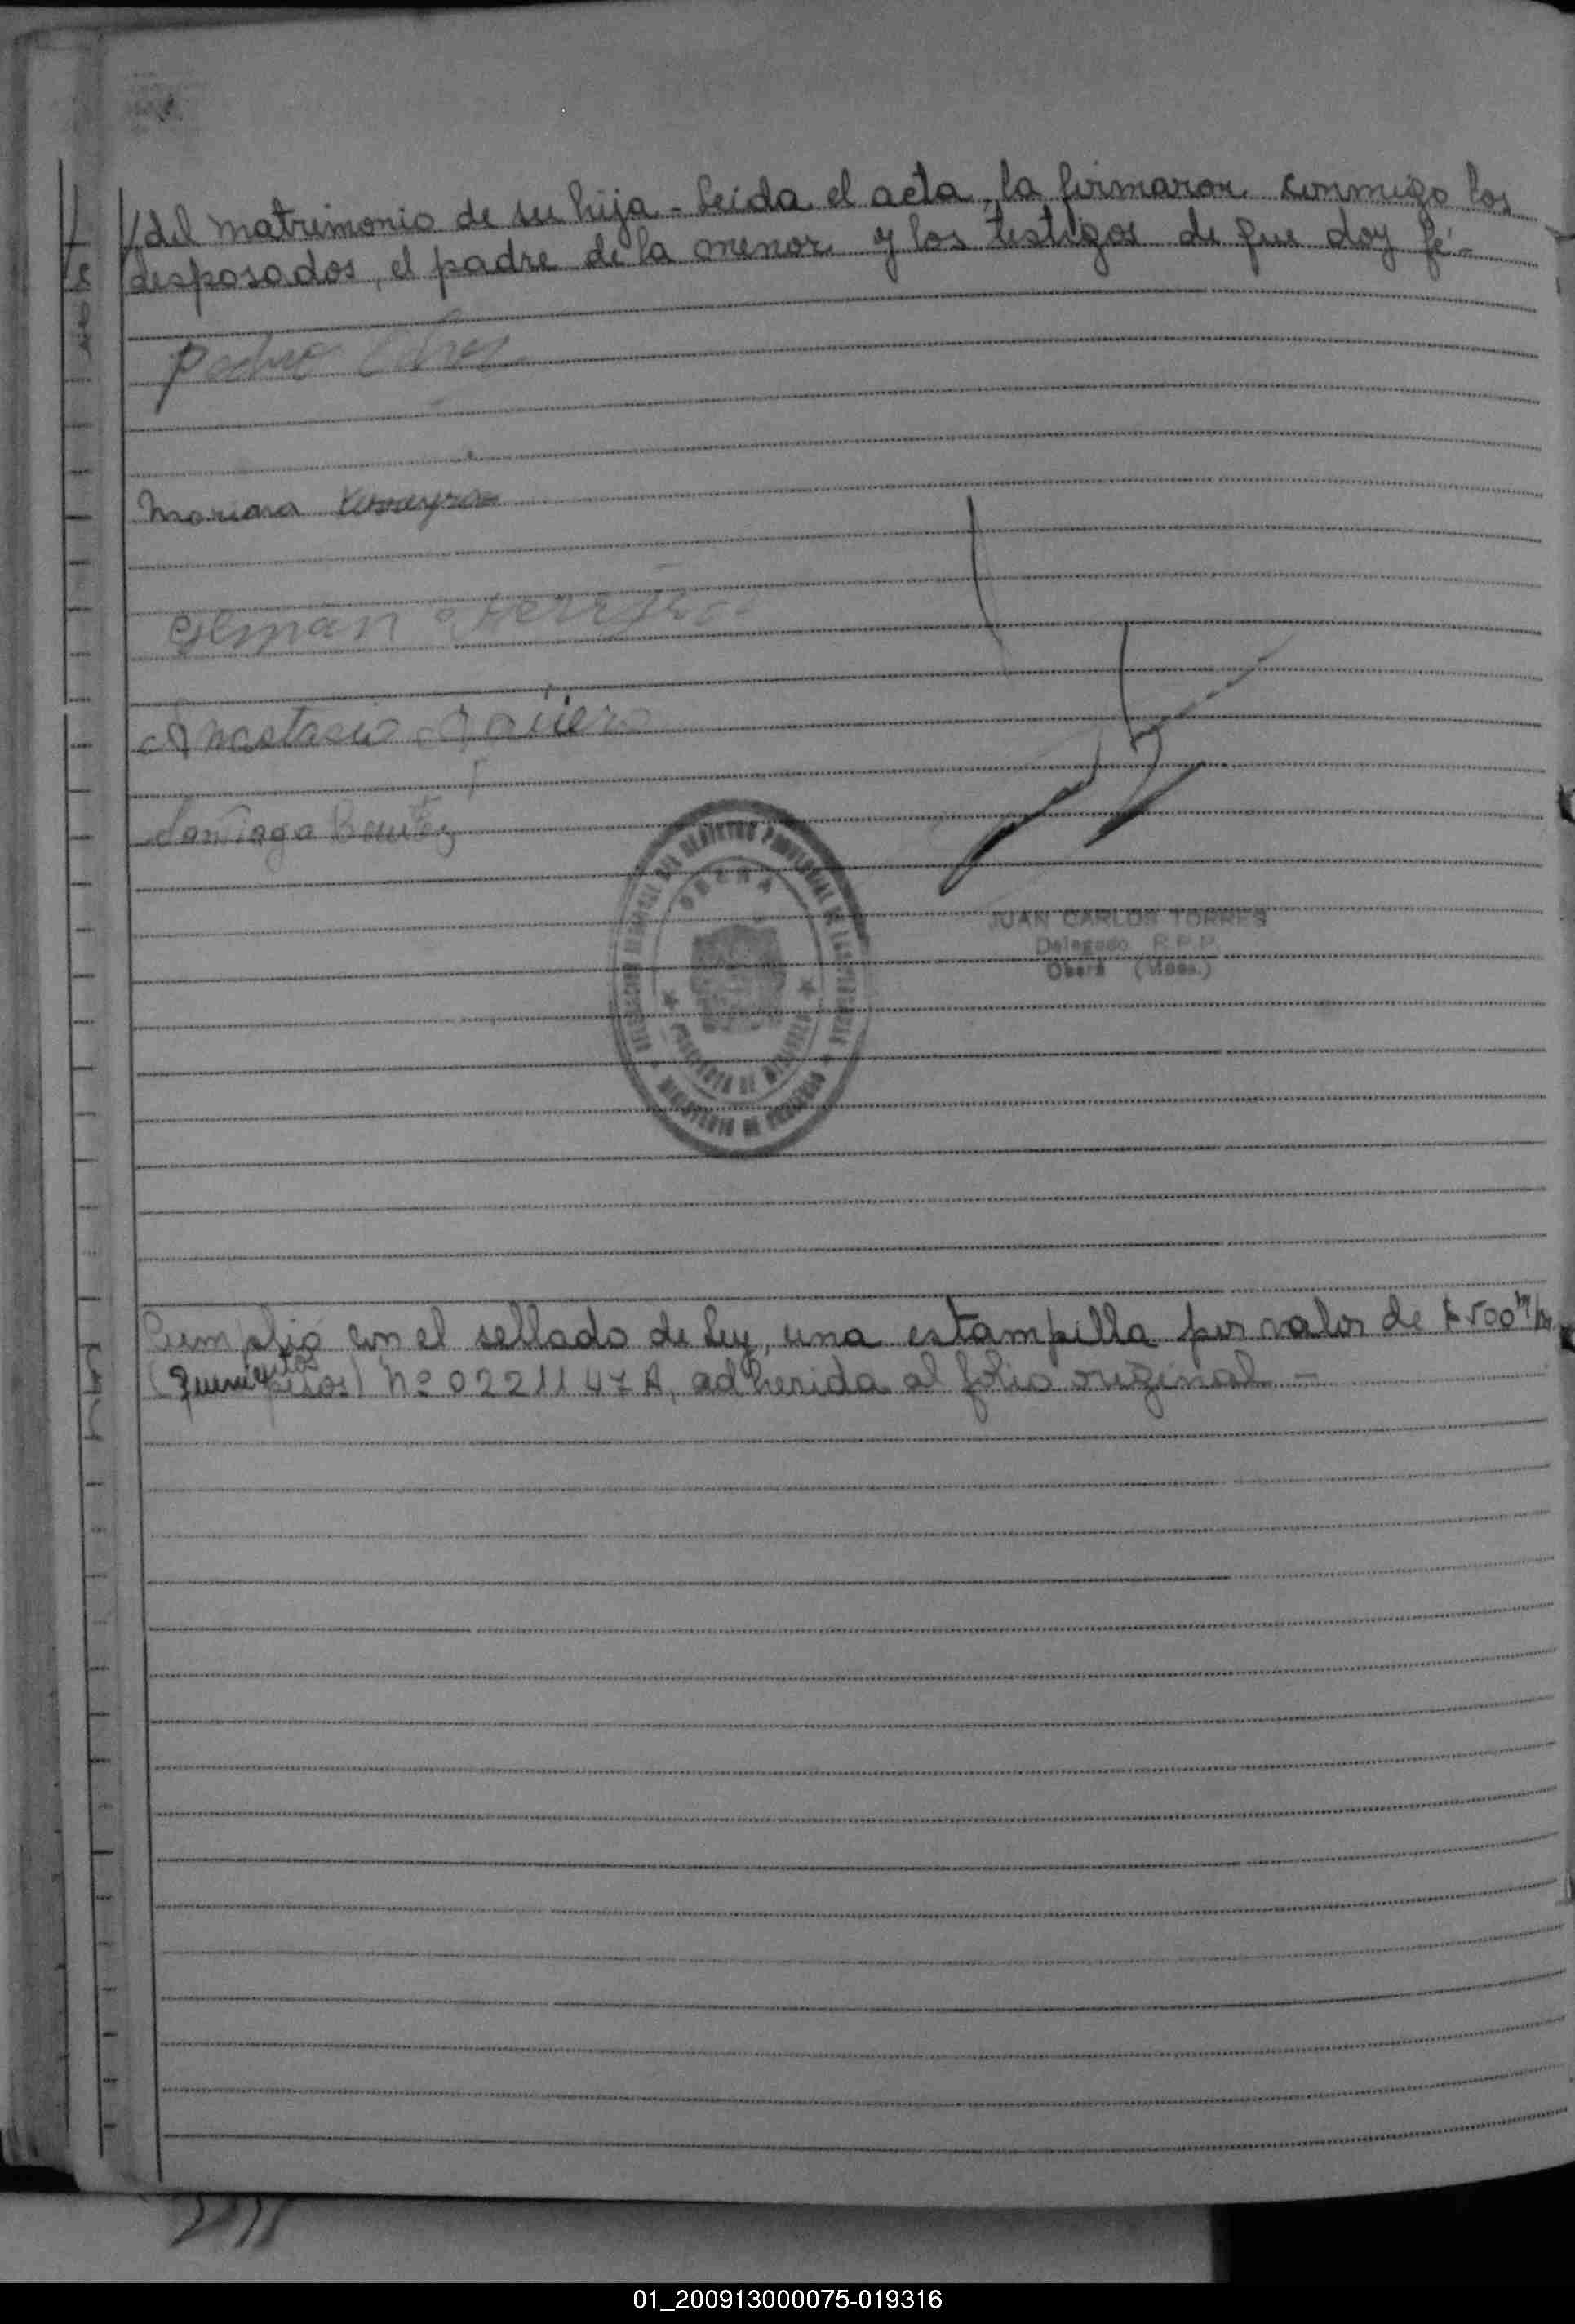 /del matrimonio de su hija - Leída el acta, la firmaron conmigo los
desposados, el padre de la menor y los testigos de que doy fé.-
Pedro
Mariana
Anastasio
Santiago Benitez
OBERA
PROVINCIA DE MISIONES
MINISTERIO DE GOBIERNO
JUAN CARLOS TORRES
Delegado R.P.P.
Oberá (Mnes.)
Cumplió con el sellado de Ley, una estampilla por valor de $ 500 m/n
(Quinientos pesos) Nº 0221147 A, adherida al folio original -
01_200913000075-019316